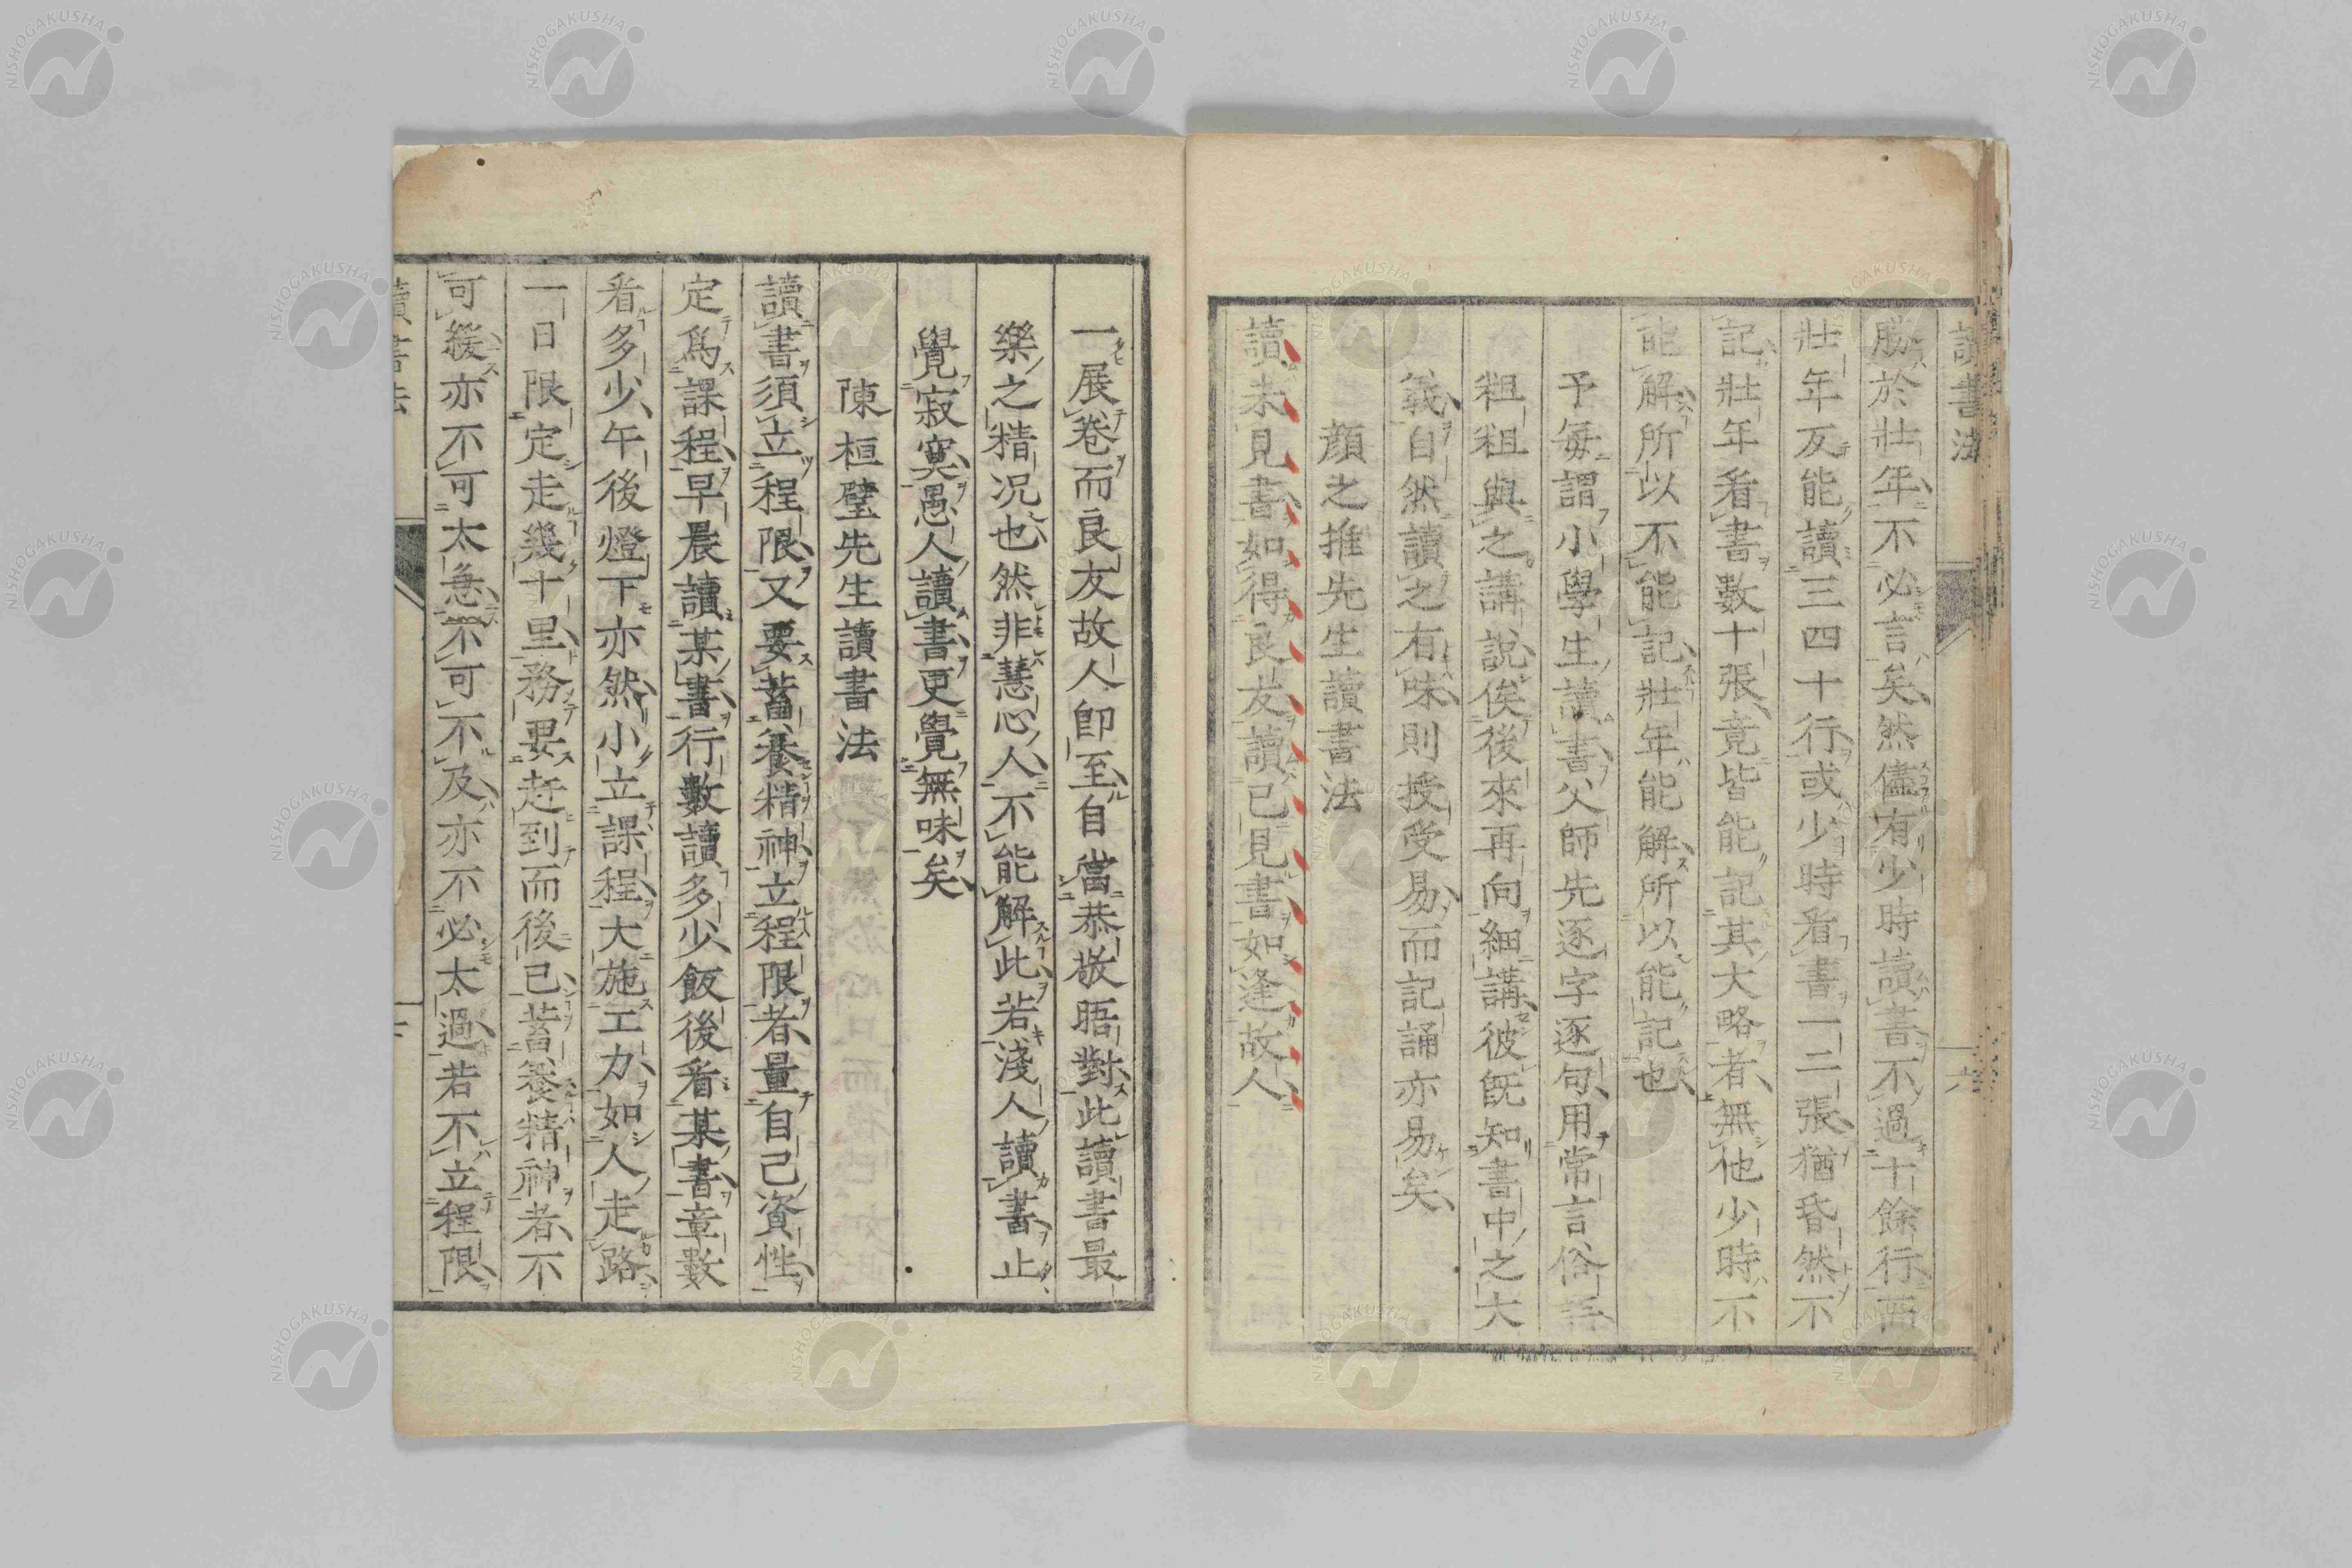 讀書法
六
勝於壯年不必言矣然儘有少時讀書不過十餘行而
壯年反能讀三四十行或少時看書一二張猶昏然不
記壯年看書數十張竟皆能記其大略者無他少時不
能解所以不能記壯年能解所以能記也
予每謂小學生讀書父師先逐字逐句用常言俗
粗粗與之講說俟後來再向細講彼既知書中之大
義自然讀之有味則授受易而記誦亦易矣
顏之推先生讀書法
讀未見書如得良友讀已見書如逢故人
一展卷而良友故人卽至自當恭敬晤對此讀書最
樂之精况也然非慧心人不能解此若淺人讀書止
覺寂寞愚人讀書更覺無味矣
陳桓璧先生讀書法
讀書須立程限又要蓄養精神立程限者量自己資性
定爲課程早晨讀某書行數讀多少飯後看某書章數
看多少午後燈下亦然小立課程大施工力如人走路
一日限定走幾十里務要赶到而後已蓄養精神者不
可緩亦不可太急不可不及亦不必太過若不立程限
讀書法
NISHOGAKUSHA